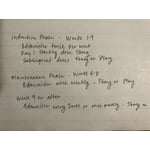 Induction Phase - Weeks 1-4
Administer twice per week
Day 1 starting dose 56mg
Subsequent doses 56mg or 84mg
Maintenance Phase - Weeks 5-8
Administer once weekly - 56mg or 84mg
Week 9 or after
Administer every 2 weeks or once weekly - 56mg or